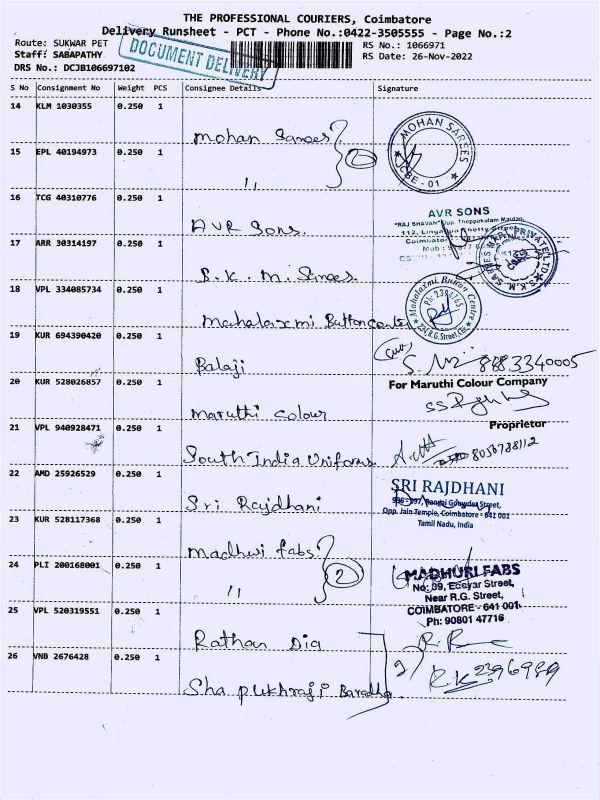 THE PROFESSIONAL COURIERS, Coimbatore
Delivery Runsheet - PCT - Phone No.:0422-3505555 - Page No.:2
Route: SUKWAR PET
RS No.: 1066971
Staff: SABAPATHY
RS Date: 26-Nov-2022
DRS No.: DCJB106697102
DOCUMENT DELIVERY
S No Consignment No Weight PCS Consignee Details Signature
14 KLM 1030355 0.250 1
mohan Sarees
MOHAN SAREES
CBE - 01
15 EPL 40194973 0.250 1
"
2
16 TCG 40310776 0.250 1
AVR Sons.
AVR SONS
"RAJ BHAVAN" Opp. Theppakulam Maidan,
17 ARR 30314197 0.250 1
S.K.M. Sarees
PRIVATE LTD
18 VPL 334085734 0.250 1
Mahalaxmi Button Centre
Mahalaxmi Button Centre
Ph: 2391765
19 KUR 694390420 0.250 1
Balaji
8883340005
20 KUR 528026857 0.250 1
maruthi colour
For Maruthi Colour Company
Proprietor
21 VPL 940928471 0.250 1
South India Uniforms
8056738112
22 AMD 25926529 0.250 1
Sri Rajdhani
SRI RAJDHANI
Opp. Jain Temple, Coimbatore - 641 001
Tamil Nadu, India
23 KUR 528117368 0.250 1
madhuri fabs
24 PLI 200168001 0.250 1
"
2
MADHURI FABS
Near R.G. Street,
COIMBATORE - 641 001.
Ph: 90801 47716
25 VPL 520319551 0.250 1
Rathan Dia
26 VNB 2676428 0.250 1
Sha pukhraji
2
R.K. 2396989